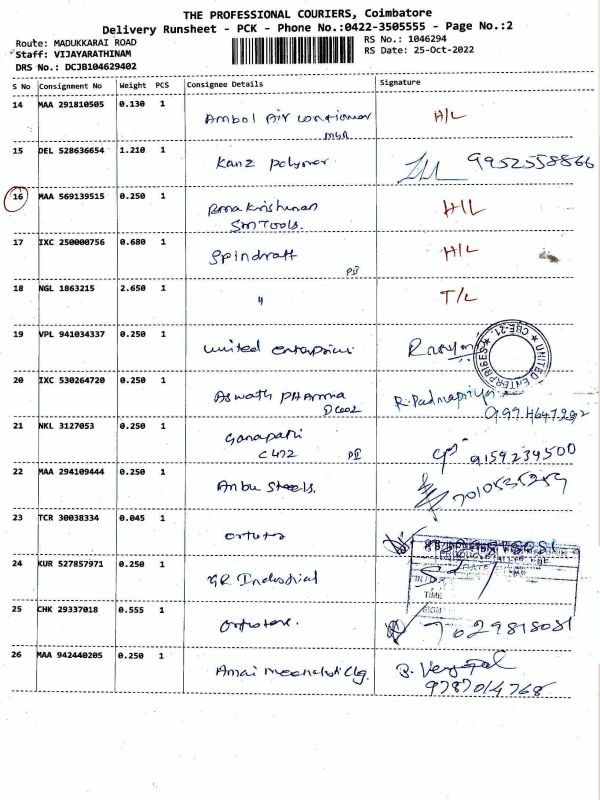 THE PROFESSIONAL COURIERS, Coimbatore
Delivery Runsheet - PCK - Phone No.:0422-3505555 - Page No.:2
Route: MADUKKARAI ROAD
Staff: VIJAYARATHINAM
DRS No.: DCJB104629402
RS No.: 1046294
RS Date: 25-Oct-2022
S No Consignment No Weight PCS Consignee Details Signature
14 MAA 291810505 0.130 1 Ambol Air H/L
15 DEL 528636654 1.210 1 Kanz Polymer 9952558866
16 MAA 569139515 0.250 1 H/L
SM Tools.
17 IXC 250000756 0.680 1 Spindraft H/L
PII
18 NGL 1863215 2.650 1 " T/L
19 VPL 941034337 0.250 1 United enterprises
UNITED ENTERPRISES ★ CBE-21. ★
20 IXC 530264720 0.250 1 Aswath PHArma R. Padmapriya
21 NKL 3127053 0.250 1 Ganapathi 9159239500
C 472 PII
22 MAA 294109444 0.250 1 Anbu Steels.
23 TCR 30038334 0.045 1
24 KUR 527857971 0.250 1 GR Industrial
DATE
TIME
SIGN
25 CHK 29337018 0.555 1 7629818081
26 MAA 942440205 0.250 1 B. Venugopal
9787014768